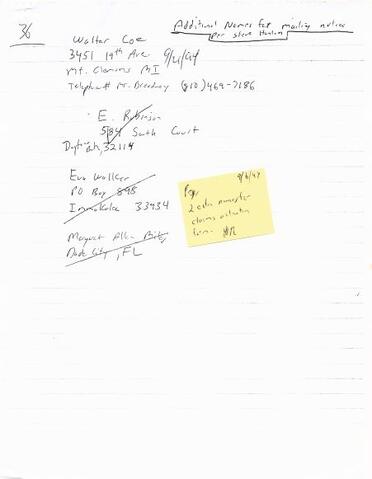 36
Additional Names for mailing notice
per Steve Hanlon
Walter Coe
3451 19th Ave 9/21/94
Mt. Clemens MI
Telephone # Mr. Broadway (810) 469-7186
E. Robinson
584 South Court
32114
Eva Walker
PO Box 895
Immokalee 33934
Margaret Allen
Dade City, FL
2 extra names for
claims
form